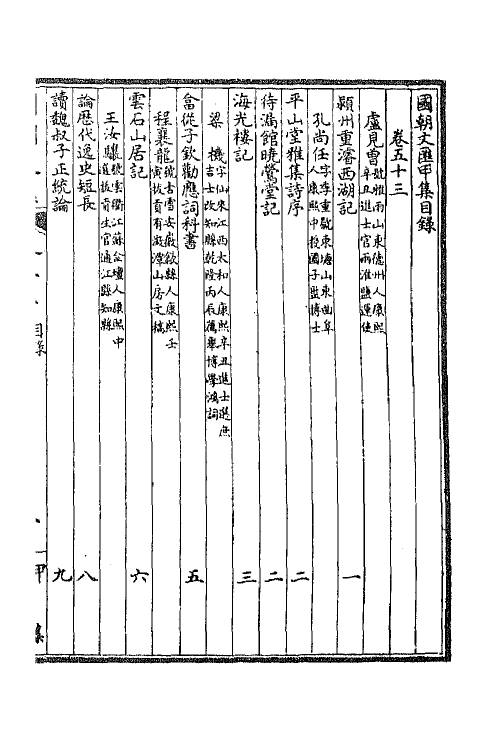 國朝文匯甲集目錄
卷五十三
盧見曾號雅雨山東德州人康熙辛丑進士官兩淮鹽運使
潁州重濬西湖記 一
孔尚任字季重號東塘山東曲阜人康熙中授國子監博士
平山堂雅集詩序 二
待漏館曉鶯堂記 二
海光樓記 三
梁機字仙來江西太和人康熙辛丑進士選庶吉士改知縣乾隆丙辰薦舉博學鴻詞
畣從子欽勸應詞科書 五
程襄龍號古雪安徽歙縣人康熙壬寅拔貢有澂潭山房文稿
雲石山居記 六
王汝驤號雲衢江蘇金壇人康熙中選拔貢生官通江縣知縣
論歷代逸史短長 八
讀魏叔子正統論 九
目錄
甲集